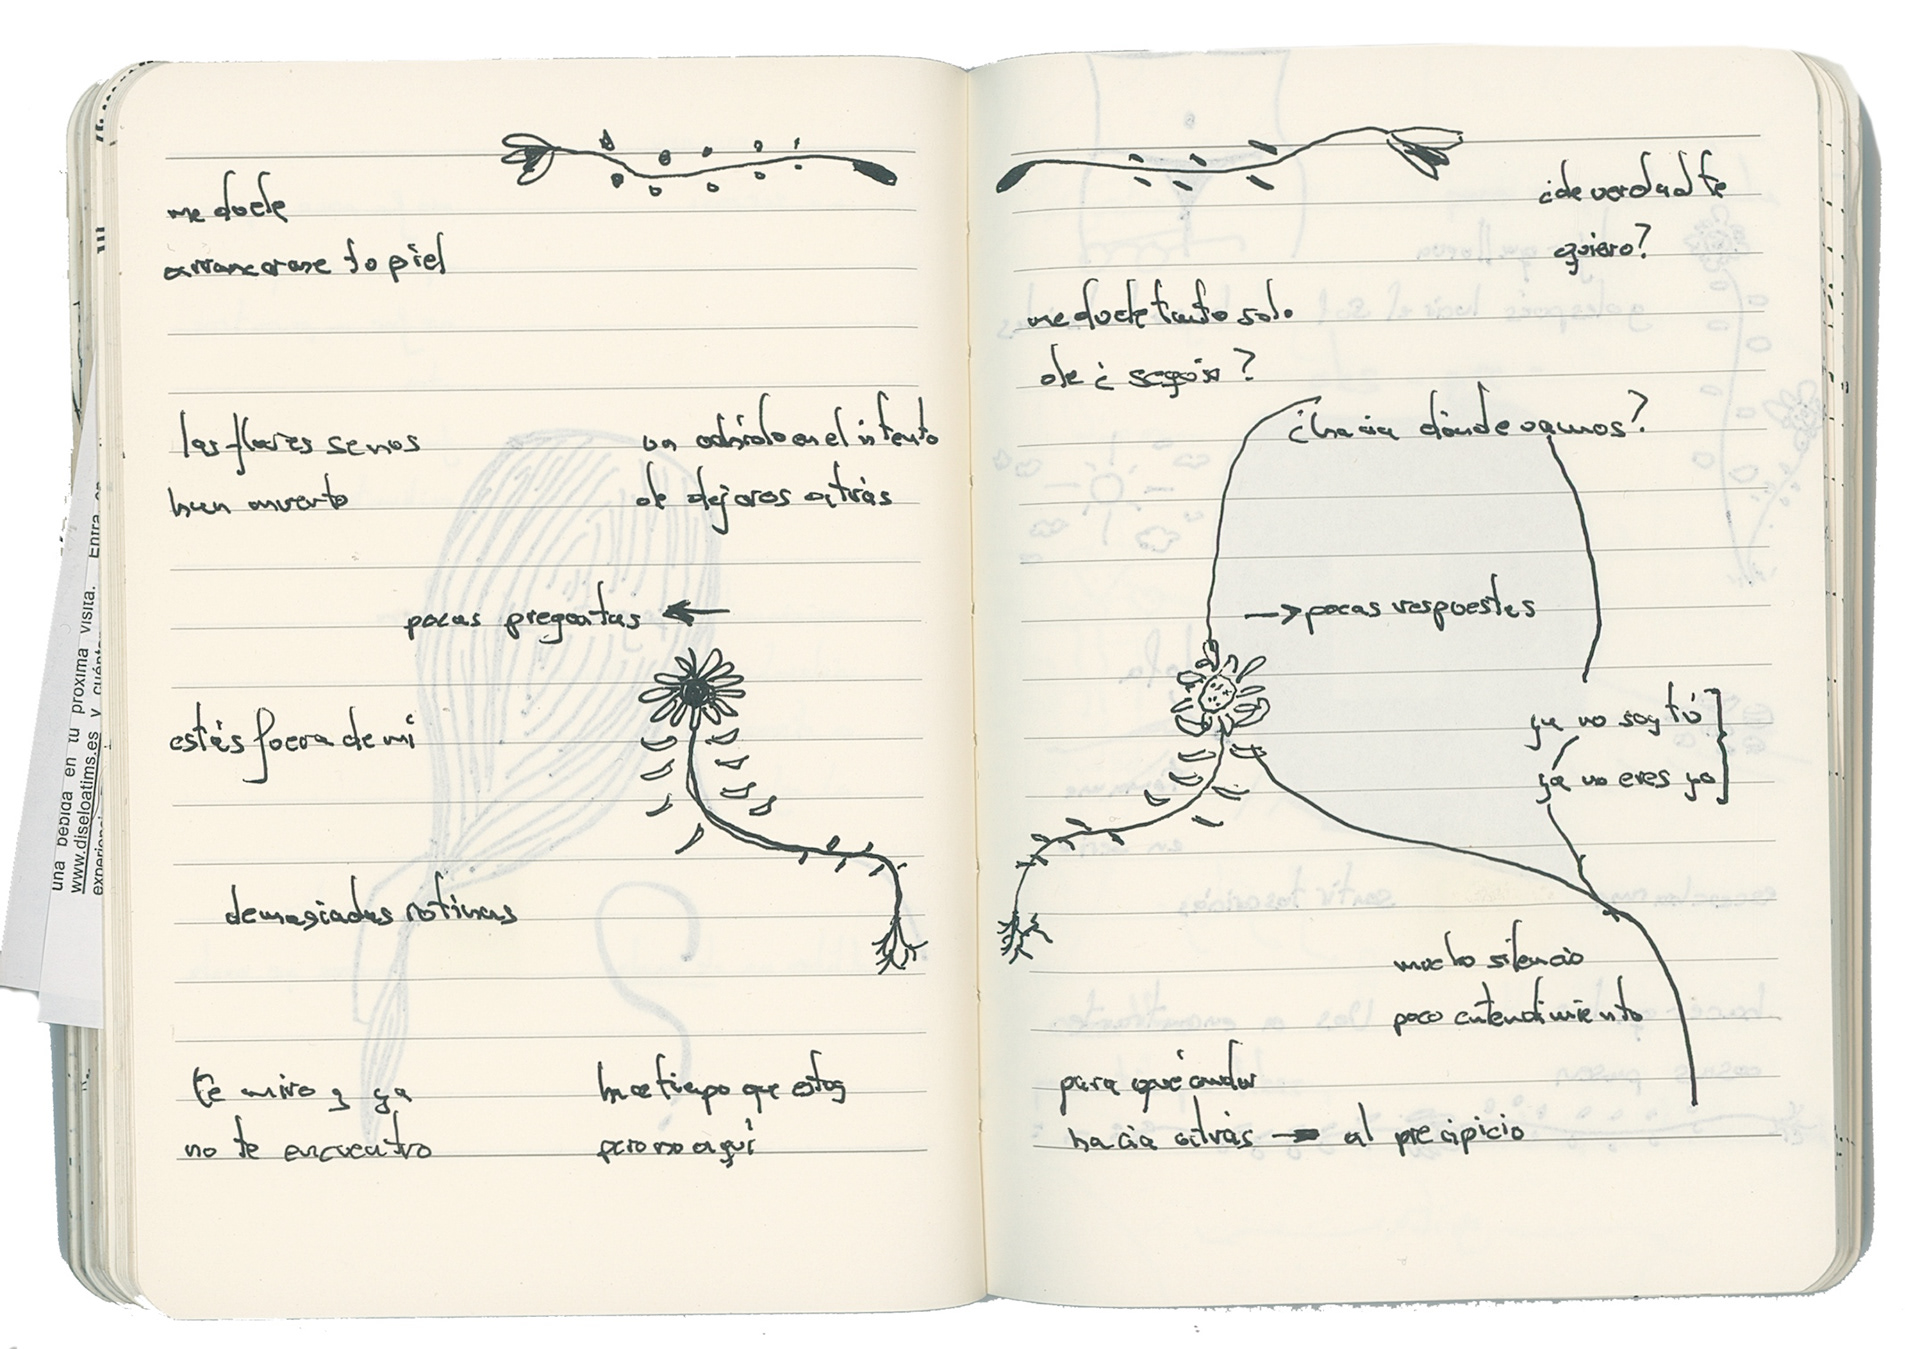 me duele
arrancarme tu piel
las flores se nos
han muerto
un adniolo en el intento
de dejaros atrás
pocas preguntas ←
estás fuera de mi
demasiadas rutinas
te miro y ya
no te encuentro
hace tiempo que estoy
pero no aquí
¿de verdad te
quiero?
me duele tanto solo
de ¿seguir?
¿hacia dónde vamos?
→ pocas respuestas
ya no soy tú
ya no eres yo
mucho silencio
poco entendimiento
para qué andar
hacia atrás → al precipicio
una bebida en tu próxima visita. Entra en
www.diseloatims.es y cuéntanos